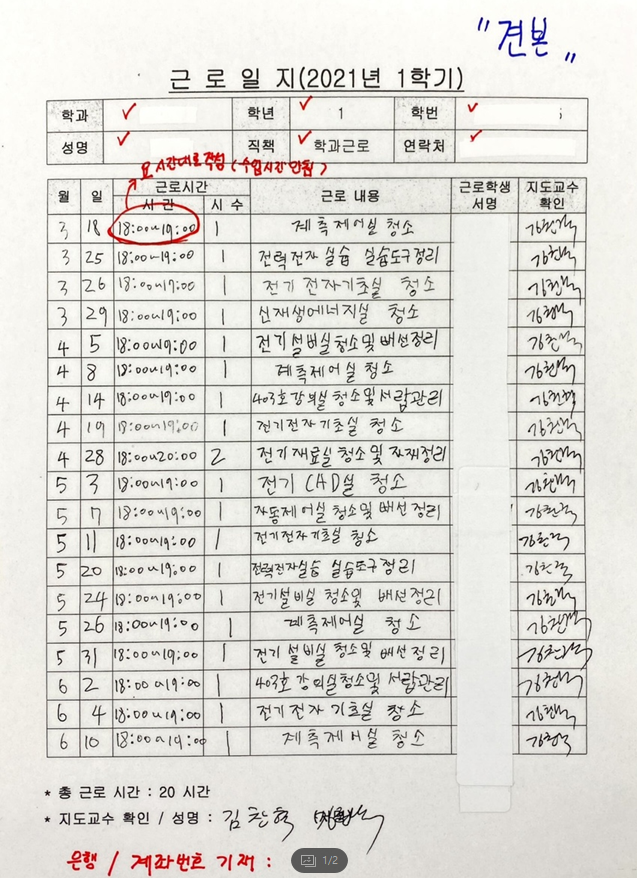 "견본"
근 로 일 지(2021년 1학기)
학과 ✓ 학년 ✓ 1 학번 ✓
성명 ✓ 직책 ✓ 학과근로 연락처 ✓
시간대로 작성 (수업시간 안됨)
월 일 근로시간 근로 내용 근로학생 지도교수
시 간 시 수 서명 확인
3 18 18:00~19:00 1 계측제어실 청소
3 25 18:00~19:00 1 전력전자 실습 실습도구정리
3 26 18:00~19:00 1 전기 전자기초실 청소
3 29 18:00~19:00 1 신재생에너지실 청소
4 5 18:00~19:00 1 전기 설비실 청소 및 배선정리
4 8 18:00~19:00 1 계측제어실 청소
4 14 18:00~19:00 1 403호 강의실 청소 및 서랍관리
4 19 18:00~19:00 1 전기전자 기초실 청소
4 28 18:00~20:00 2 전기 재료실 청소 및 자재정리
5 3 18:00~19:00 1 전기 CAD실 청소
5 7 18:00~19:00 1 자동제어실 청소 및 배선 정리
5 11 18:00~19:00 1 전기전자기초실 청소
5 20 18:00~19:00 1 전력전자실습 실습도구정리
5 24 18:00~19:00 1 전기설비실 청소 및 배선정리
5 26 18:00~19:00 1 계측제어실 청소
5 31 18:00~19:00 1 전기 설비실 청소 및 배선정리
6 2 18:00~19:00 1 403호 강의실청소 및 서랍관리
6 4 18:00~19:00 1 전기전자 기초실 청소
6 10 18:00~19:00 1 계측제어실 청소
* 총 근로 시간 : 20 시간
* 지도교수 확인 / 성명 :
은행 / 계좌번호 기재 :
1/2